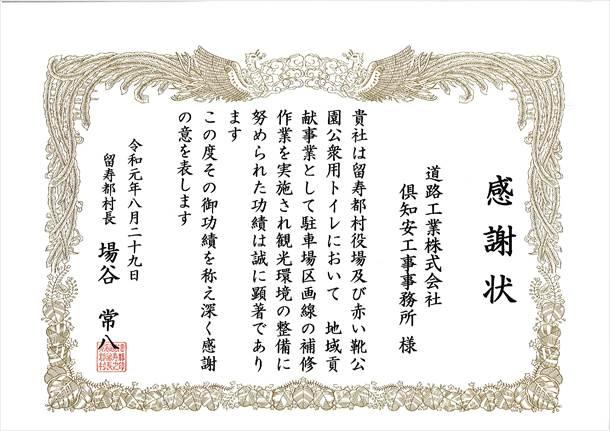 感謝状
道路工業株式会社
倶知安工事事務所 様
貴社は留寿都村役場及び赤い靴公
園公衆用トイレにおいて 地域貢
献事業として駐車場区画線の補修
作業を実施され観光環境の整備に
努められた功績は誠に顕著であり
ます
この度その御功績を称え深く感謝
の意を表します
令和元年八月二十九日
留寿都村長 場谷 常八